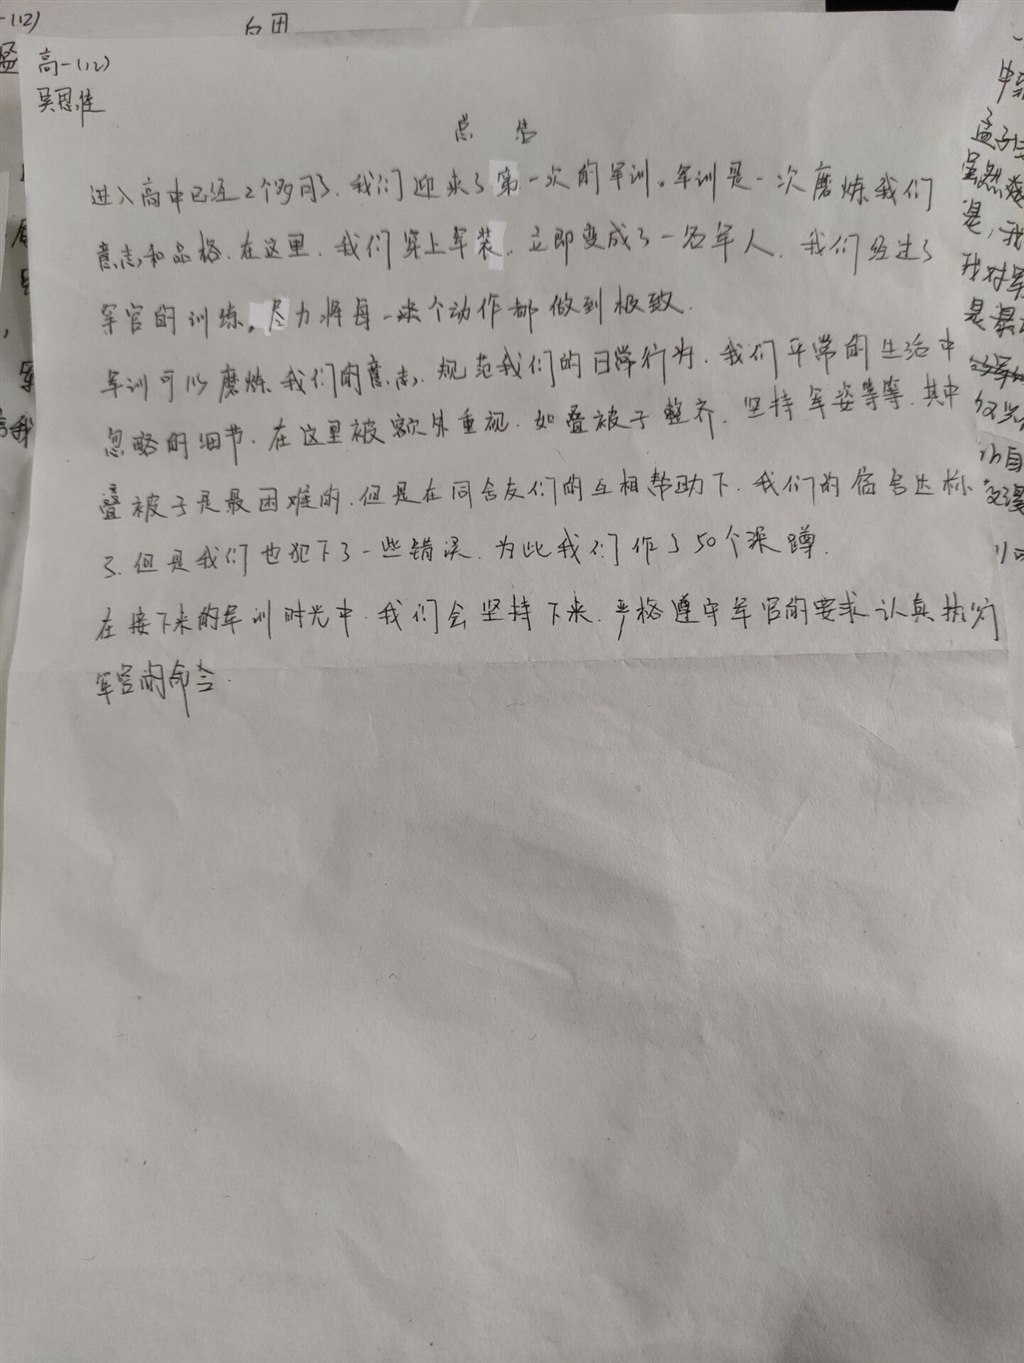 高一(12)
吴思佳
总 结
进入高中已经2个多月了、我们迎来了第一次的军训。军训是一次磨炼我们
意志和品格.在这里.我们穿上军装.立即变成了一名军人.我们经过了
军官的训练,尽力将每一个动作都做到极致.
军训可以磨炼我们的意志、规范我们的日常行为.我们平常的生活中
忽略的细节.在这里被额外重视.如叠被子整齐.坚持军姿等等.其中
叠被子是最困难的.但是在同舍友们的互相帮助下.我们的宿舍达标
了.但是我们也犯下了一些错误.为此我们作了50个深蹲.
在接下来的军训时光中.我们会坚持下来.严格遵守军官的要求认真执行
军官的命令.